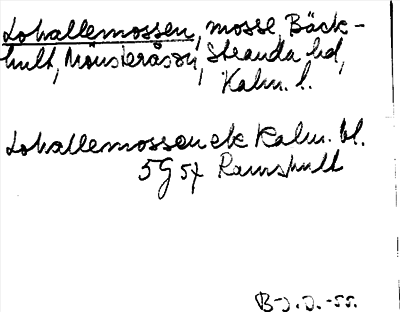 Lohallemossen, mosse, Bäck-
hult, Mönsterås sn, Stranda hd,
Kalm. l.
Lohallemossen ek Kalm. bl.
5G 5f Ramshult
B-J.J.-55.